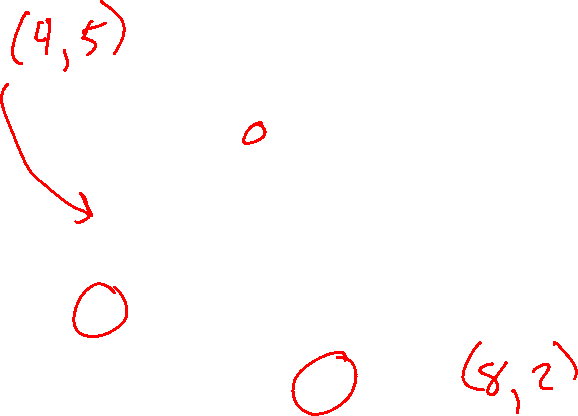 (4,5)
(8,2)